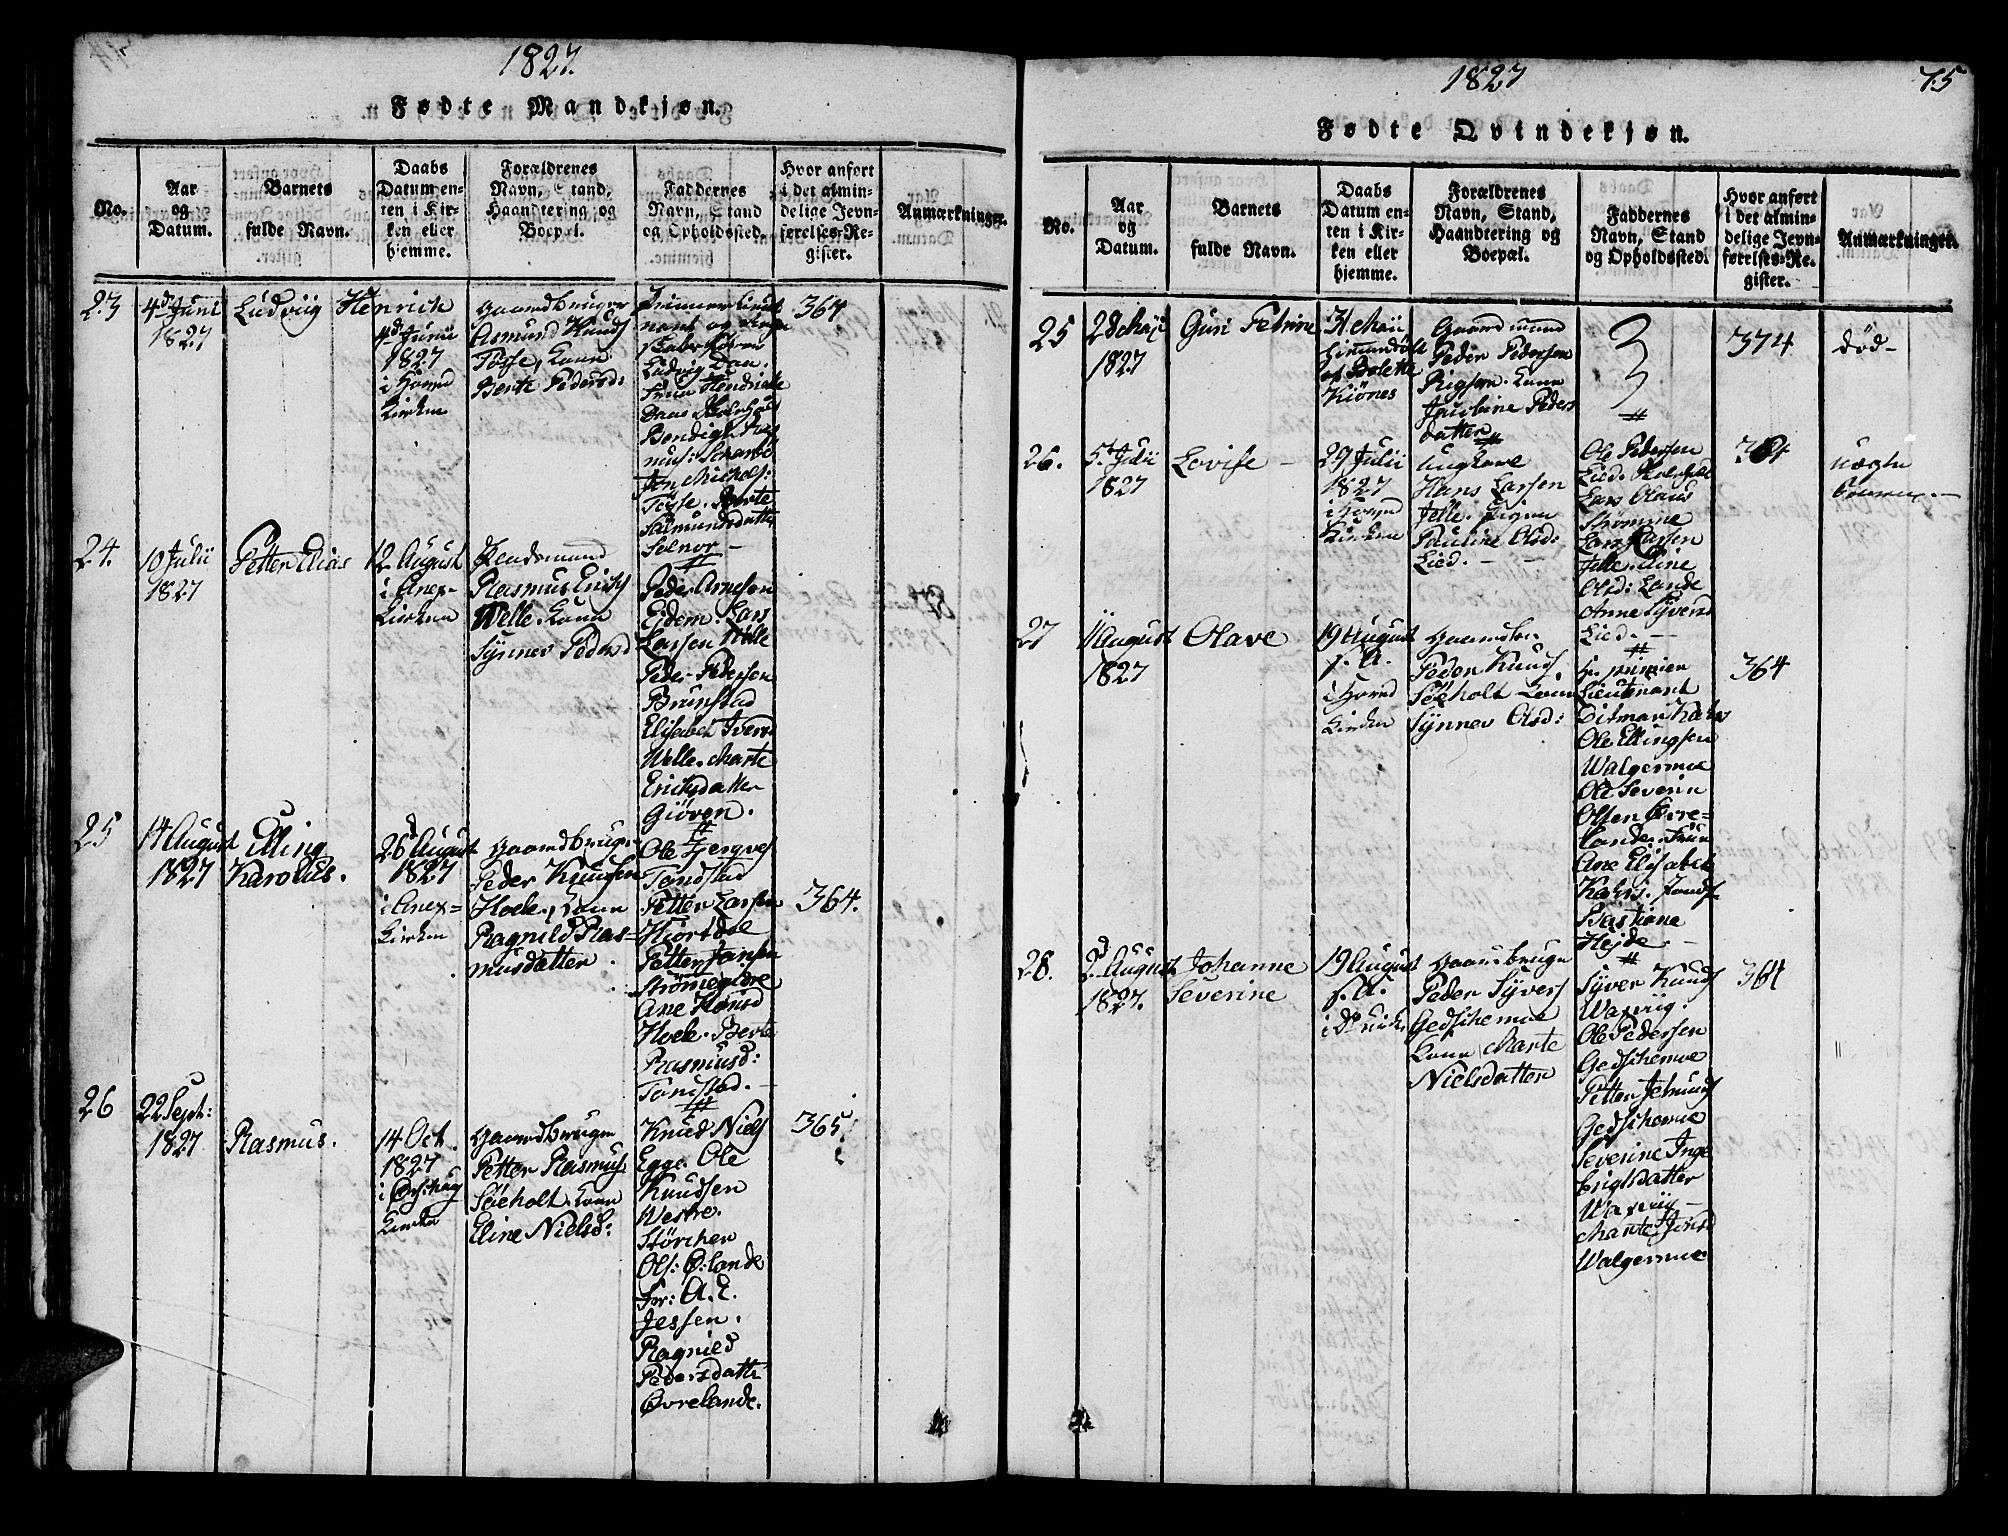 1827.
Fødte Mandkjøn.
No.
Aar
og
Datum.
Barnets
fulde Navn.
Daabs
Datum en-
ten i Kir-
ken eller
hjemme.
Forældrenes
Navn, Stand,
Haandtering og
Boepæl.
Faddernes
Navn, Stand
og Opholdssted.
Hvor anført
i det almin-
delige Jevn-
førelses-Re-
gister.
Anmærkninger.
23
4d Juni
1827
Ludviig Henrich
4d Junii
1827
i Hoved
Kirken
Gaardbruger
Asmund Knuds
Tøsse, Kone
Berte Pedersd:
Premier Lieut
nant og
Ludvig Daae.
Frue Hendrikke
Daae
Bendigt Ras
mus:
Jon Michels:
Tøsse. Berte
Salmundsdatter
Solnor —
364
24.
10 Julii
1827
Petter Elias
12 August
i Anex-
Kirken
Rasmus Erichs
Welle. Kone
Synnev Pedersd
Peder Arnesen
Ejdem. Lars
Larsen Welle
Peder Pedersen
Brunstad
Elisabet Iversd
Welle. Marte
Ericksdatter
Giöven.
25
14 August
1827
Elling
Karolus.
26d August
1827
i Anex=
Kirken
Gaardbruger
Peder Knudsen
Hoele. Kone
Ragnild Ras=
musdatter
Ole
Tandstad
Petter Larsen
Hjortdal
Petter Jansen
Strömegdre
Ane
Hoele. Berte
Rasmusd:
Tandstad. —
364.
26
22 Sept:
1827
Rasmus.
14 Oct.
1827
i Ørschoug
Kirke
Gaardbruger
Petter Rasmus
Søeholt. Kone
Eline Nielsd:
Knud Niels
Egge. Ole
Knudsen
Westre.
Störcher
Ols: Ø:lande
Fr: A. E.
Jessen.
Ragnild
Pedersdatt:
Øvrelande.
365.
1827
75
Fødte Qvindekjøn.
No.
Aar
og
Datum.
Barnets
fulde Navn.
Daabs
Datum en-
ten i Kir-
ken eller
hjemme.
Forældrenes
Navn, Stand,
Haandtering og
Boepæl.
Faddernes
Navn, Stand
og Opholdssted.
Hvor anført
i det almin-
delige Jevn-
førelses-Re-
gister.
Anmærkninger.
25
28 Maji
1827
Guri Petrine
31 Maii
hiemmedöbt
af Bolette
Kiönes
Gaardmand
Peder Pedersen
Rigsem. Kone
Jacobine Peders
datter
374
død-
26.
5. Julii
1827
Lovise —
29 Julii
1827
i Hoved
Kirken
Ungkarl
Hans Larsen
Jelle. Pigen
Pauline Olsd:
Lied. —
Ole Pedersen
Lied.
Lars Olaus
Strømme
Lars Larsen
Jelle. Eline
Olsd: Lande
Anne Syvers
Lied. —
364
uægte
27
11 August
1827
Olave
19 August
s. A.
i Hoved
Kirken
Gaardbr.
Peder Knuds
Søeholt Kone
Synnev Olsd:
Hr. premier
Lieutenant
Ditman Kahrs
Ole Ellingsen
Walgermoe
Ole Severin
Olsen Øvre-
lande. Frue
Ane Elisabet
Kahrs.
Bastiane
Hejde —
364
28.
2d August
1827.
Johanne
Severine
19 August
s. A.
Gaardbruger
Peder Syvers
Gedschemoe
Kone Marte
Nielsdatter
Syver Knuds
Waxviig.
Ole Pedersen
Gedschemoe
Petter Jetmunds
Gedschemoe
Severine Inge
brigtsdatter
Waxviig —
Marte Jonsd
Walgermoe.
364